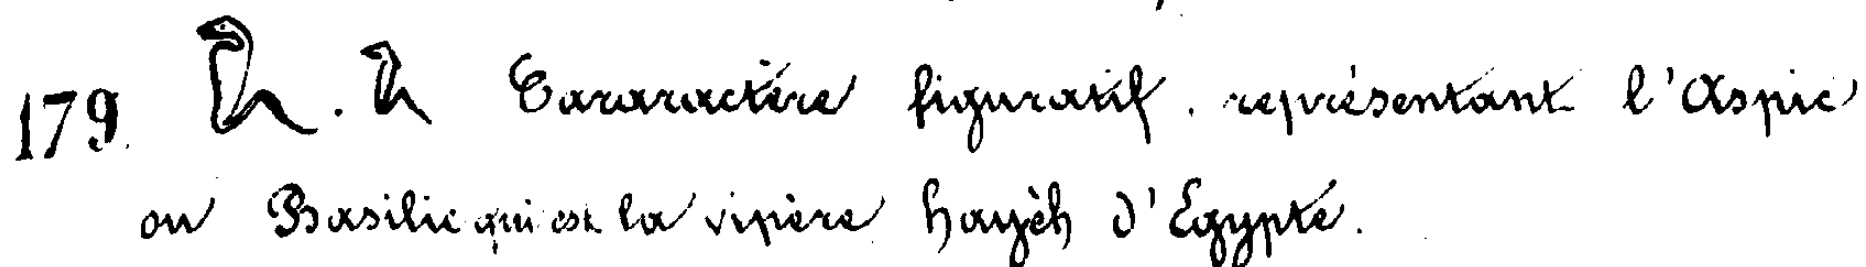 179. 𓆗 . 𓆗 Cararactère figuratif. représentant l'Aspic
ou Basilic qui est la vipère hayèh d'Egypte.